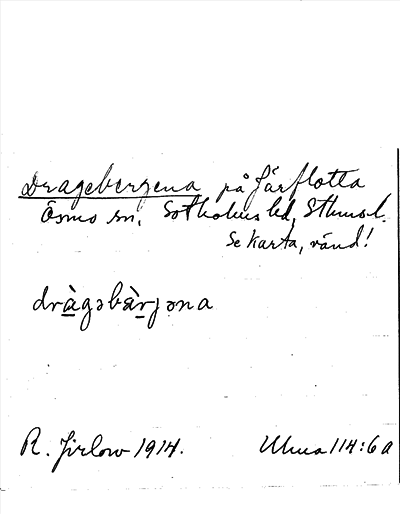 Dragebergena på Järflotta
Ösmo sn, Sotholms hd, Sthmsl.
Se karta, vänd!
dràgəbàrjəna
R. Jirlow 1914. Ulma 114:6a